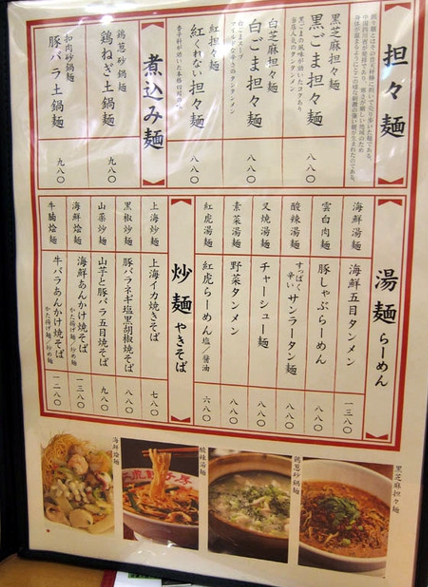 担々麺
黒芝麻担々麺
黒ごま担々麺
八八〇
白芝麻担々麺
白ごま担々麺
八八〇
紅担々麺
紅くれない担々麺
八八〇
煮込み麺
鶏葱砂鍋麺
鶏ねぎ土鍋麺
九八〇
扣肉砂鍋麺
豚バラ土鍋麺
九八〇
湯麺 らーめん
海鮮湯麺
海鮮五目タンメン
一三八〇
雲白肉麺
豚しゃぶらーめん
八八〇
酸辣湯麺
すっぱく辛いサンラータン麺
八八〇
叉焼湯麺
チャーシュー麺
八八〇
素菜湯麺
野菜タンメン
八八〇
紅虎湯麺
紅虎らーめん 塩/醤油
六八〇
炒麺 やきそば
上海炒麺
上海イカ焼きそば
七八〇
黒椒炒麺
豚バラネギ塩黒胡椒焼そば
八八〇
山薬炒麺
山芋と豚バラ五目焼そば
九八〇
海鮮燴麺
海鮮あんかけ焼そば
かた揚げ麺/炒め麺
一三八〇
牛腩燴麺
牛バラあんかけ焼そば
かた揚げ麺/炒め麺
一二八〇
黒芝麻担々麺
鶏葱砂鍋麺
酸辣湯麺
海鮮燴麺